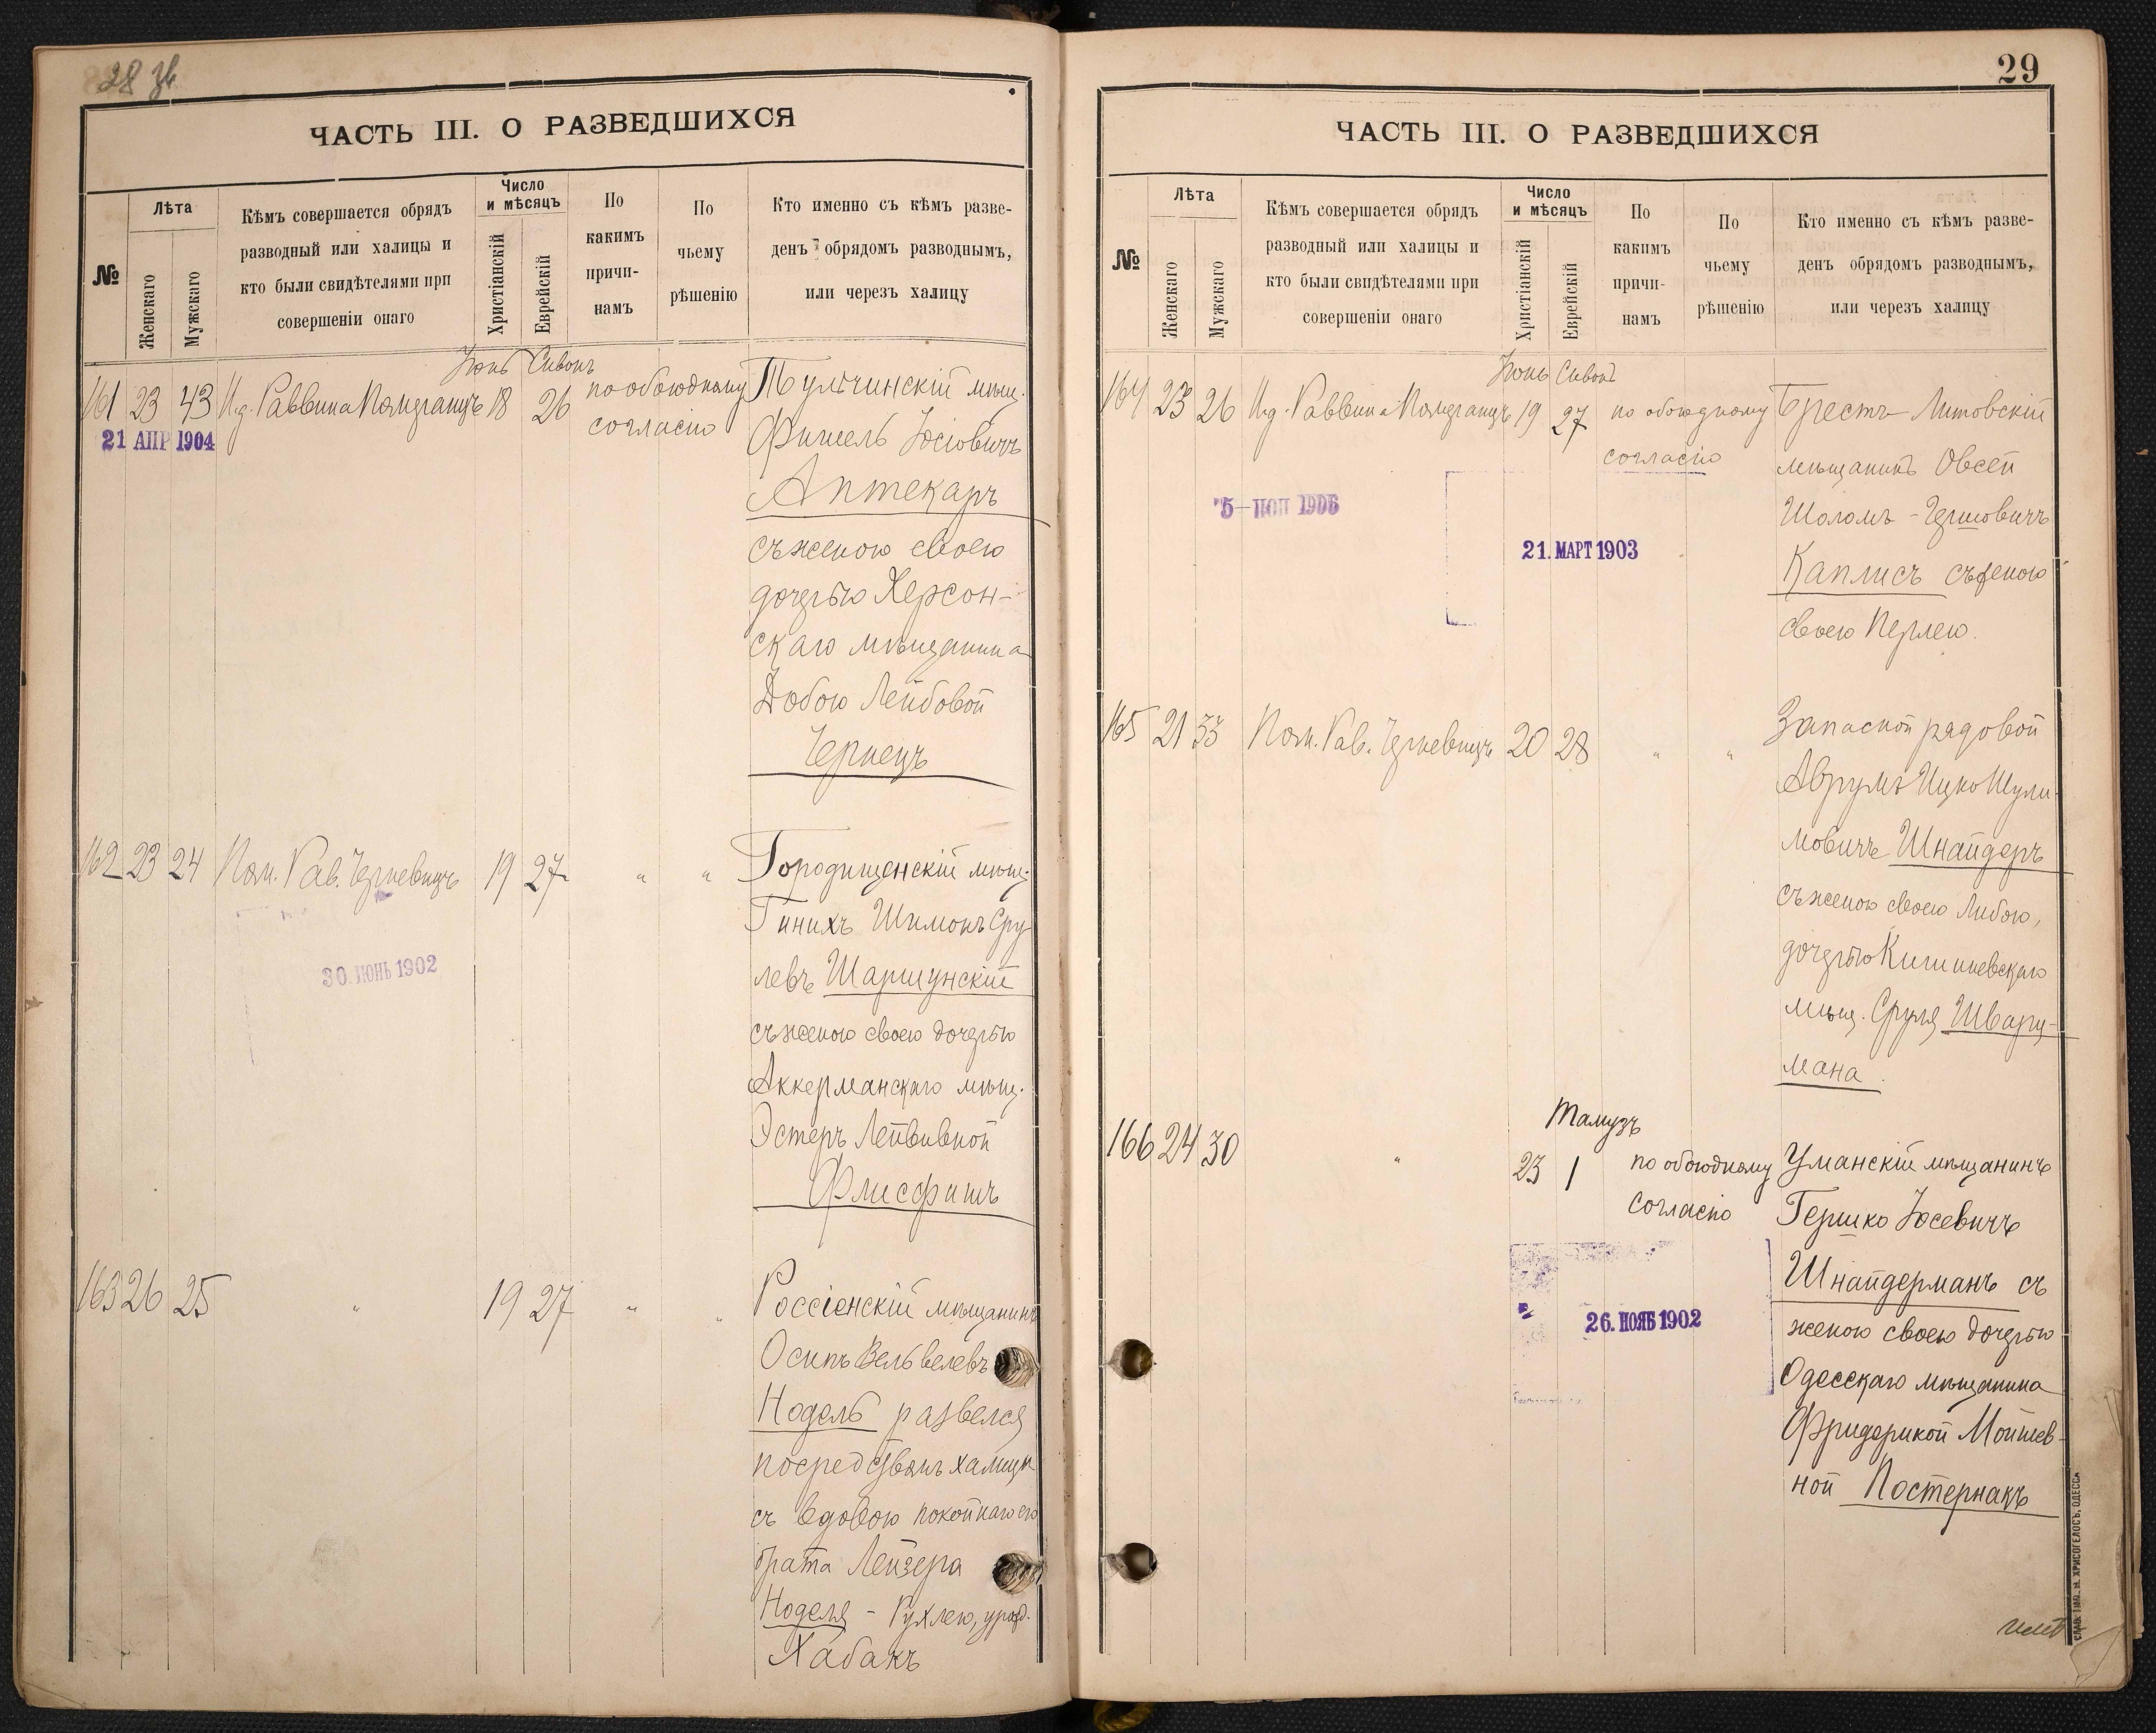 28
ЧАСТЬ III. О РАЗВЕДШИХСЯ
№
Лѣта
Женскаго
Мужскаго
Кѣмъ совершается обрядъ
разводный или халицы и
кто были свидѣтелями при
совершеніи онаго
Число
и мѣсяцъ
Христіанскій
Еврейскій
По
какимъ
причи-
намъ
По
чьему
рѣшенію
Кто именно съ кѣмъ разве-
денъ обрядомъ разводнымъ,
или черезъ халицу
Іюнь Сивонъ
161 23 43 И.д. Раввина Померанцъ 18 26 по обоюдному
согласію
21 АПР 1904
Тульчинскій мѣщ.
Фишель Іосіовичъ
Аптекарь
съ женою своею
дочерью Херсон-
скаго мѣщанина
Добою Лейбовой
Чернецъ
162 23 24 Пом. Рав. 19 27 " "
30. ІЮНЬ 1902
Городищенскій мѣщ.
Гинихъ Шимонъ Сру
левъ Шаршунскій
съ женою своею дочерью
Аккерманскаго мѣщ.
Эстеръ Лейвивной
Флисфишъ
163 26 25 " 19 27 " "
Россіенскій мѣщанинъ
Осипъ Вельвелевъ
Нодель развелся
посредствомъ халицы
съ вдовою покойнаго его
брата Лейзера
Ноделя - Рухлею, урожд.
Хабакъ
29
ЧАСТЬ III. О РАЗВЕДШИХСЯ
№
Лѣта
Женскаго
Мужскаго
Кѣмъ совершается обрядъ
разводный или халицы и
кто были свидѣтелями при
совершеніи онаго
Число
и мѣсяцъ
Христіанскій
Еврейскій
По
какимъ
причи-
намъ
По
чьему
рѣшенію
Кто именно съ кѣмъ разве-
денъ обрядомъ разводнымъ,
или черезъ халицу
Іюнь Сивонъ
164 23 26 И.д. Раввина Померанцъ 19 27 по обоюдному
согласію
21. МАРТ 1903
Брестъ-Литовскій
мѣщанинъ Овсей
Шоломъ-Гершовичъ
Каплисъ съ женою
своею Перлею.
165 21 33 Пом. Рав. 20 28 " "
Запасной рядовой
Аврумъ Ицко Шули-
мовичъ Шнайдеръ
съ женою своею Либою,
дочерью Кишиневскаго
мѣщ. Сруля Шварц-
мана.
Тамузъ
166 24 30 " 23 1 по обоюдному
согласію
26. НОЯБ 1902
Уманскій мѣщанинъ
Гершко Іосевичъ
Шнайдерманъ съ
женою своею дочерью
Одесскаго мѣщанина
Фридерикой Мойшев-
ной Постернакъ
СЛАВ. ТИП. Н. ХРИСОГЕЛОСЪ, ОДЕССА